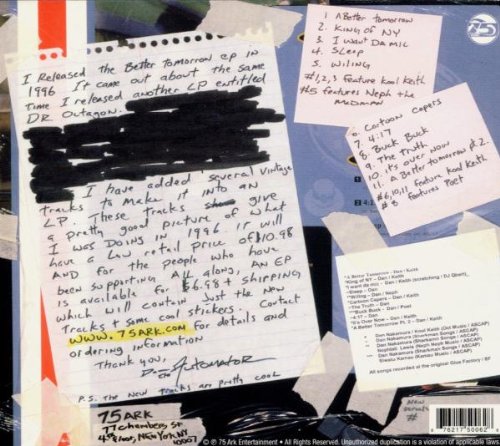 I Released the Better Tomorrow ep in
1996 It came out about the same
Time I released another LP entitled
DR Octagon.
I have added several vintage
tracks to make it into an
LP. These tracks give
a pretty good picture of what
I was DOING in 1996. it will
have a low retail price of $10.98
AND for the people who have
been supporting All along, An EP
is available for $6.98 + shipping
which will contain Just the new
Tracks + some cool stickers. Contact
WWW.75ARK.COM for details and
ordering information
Thank you,
Dan the Automator
P.S. The New Tracks are pretty cool
75 ARK
77 chambers St
4th floor, New York, NY
10007
1. A Better tomorrow
2. King of NY
3. I Want Da Mic
4. Sleep
5. Wiling
#1,2,3 feature Kool Keith
#5 features Neph the
Madman
75
6. Cartoon Capers
7. 4:17
8. Buck Buck
9. The Truth
10. it's over Now
11. A Better Tomorrow pt. 2.
#6,10,11 feature Kool Keith
#8 features Poet
"A Better Tomorrow - Dan / Keith
"King of NY - Dan / Keith
"I want da mic - Dan / Keith (scratching / DJ Qbert)
"Sleep - Dan
"Wiling - Dan / Neph
"Cartoon Capers - Dan / Keith
"The Truth - Dan
"Buck Buck - Dan / Poet
"4:17 - Dan
"It's Over Now - Dan / Keith
"A Better Tomorrow Pt. 2 - Dan / Keith
Dan Nakamura / Kool Keith
Dan Nakamura (Sharkman Songs / ASCAP)
All songs recorded at the original Glue Factory / SF
6 76217 50062
© ℗ 75 Ark Entertainment • All Rights Reserved. Unauthorized duplication is a violation of applicable laws.